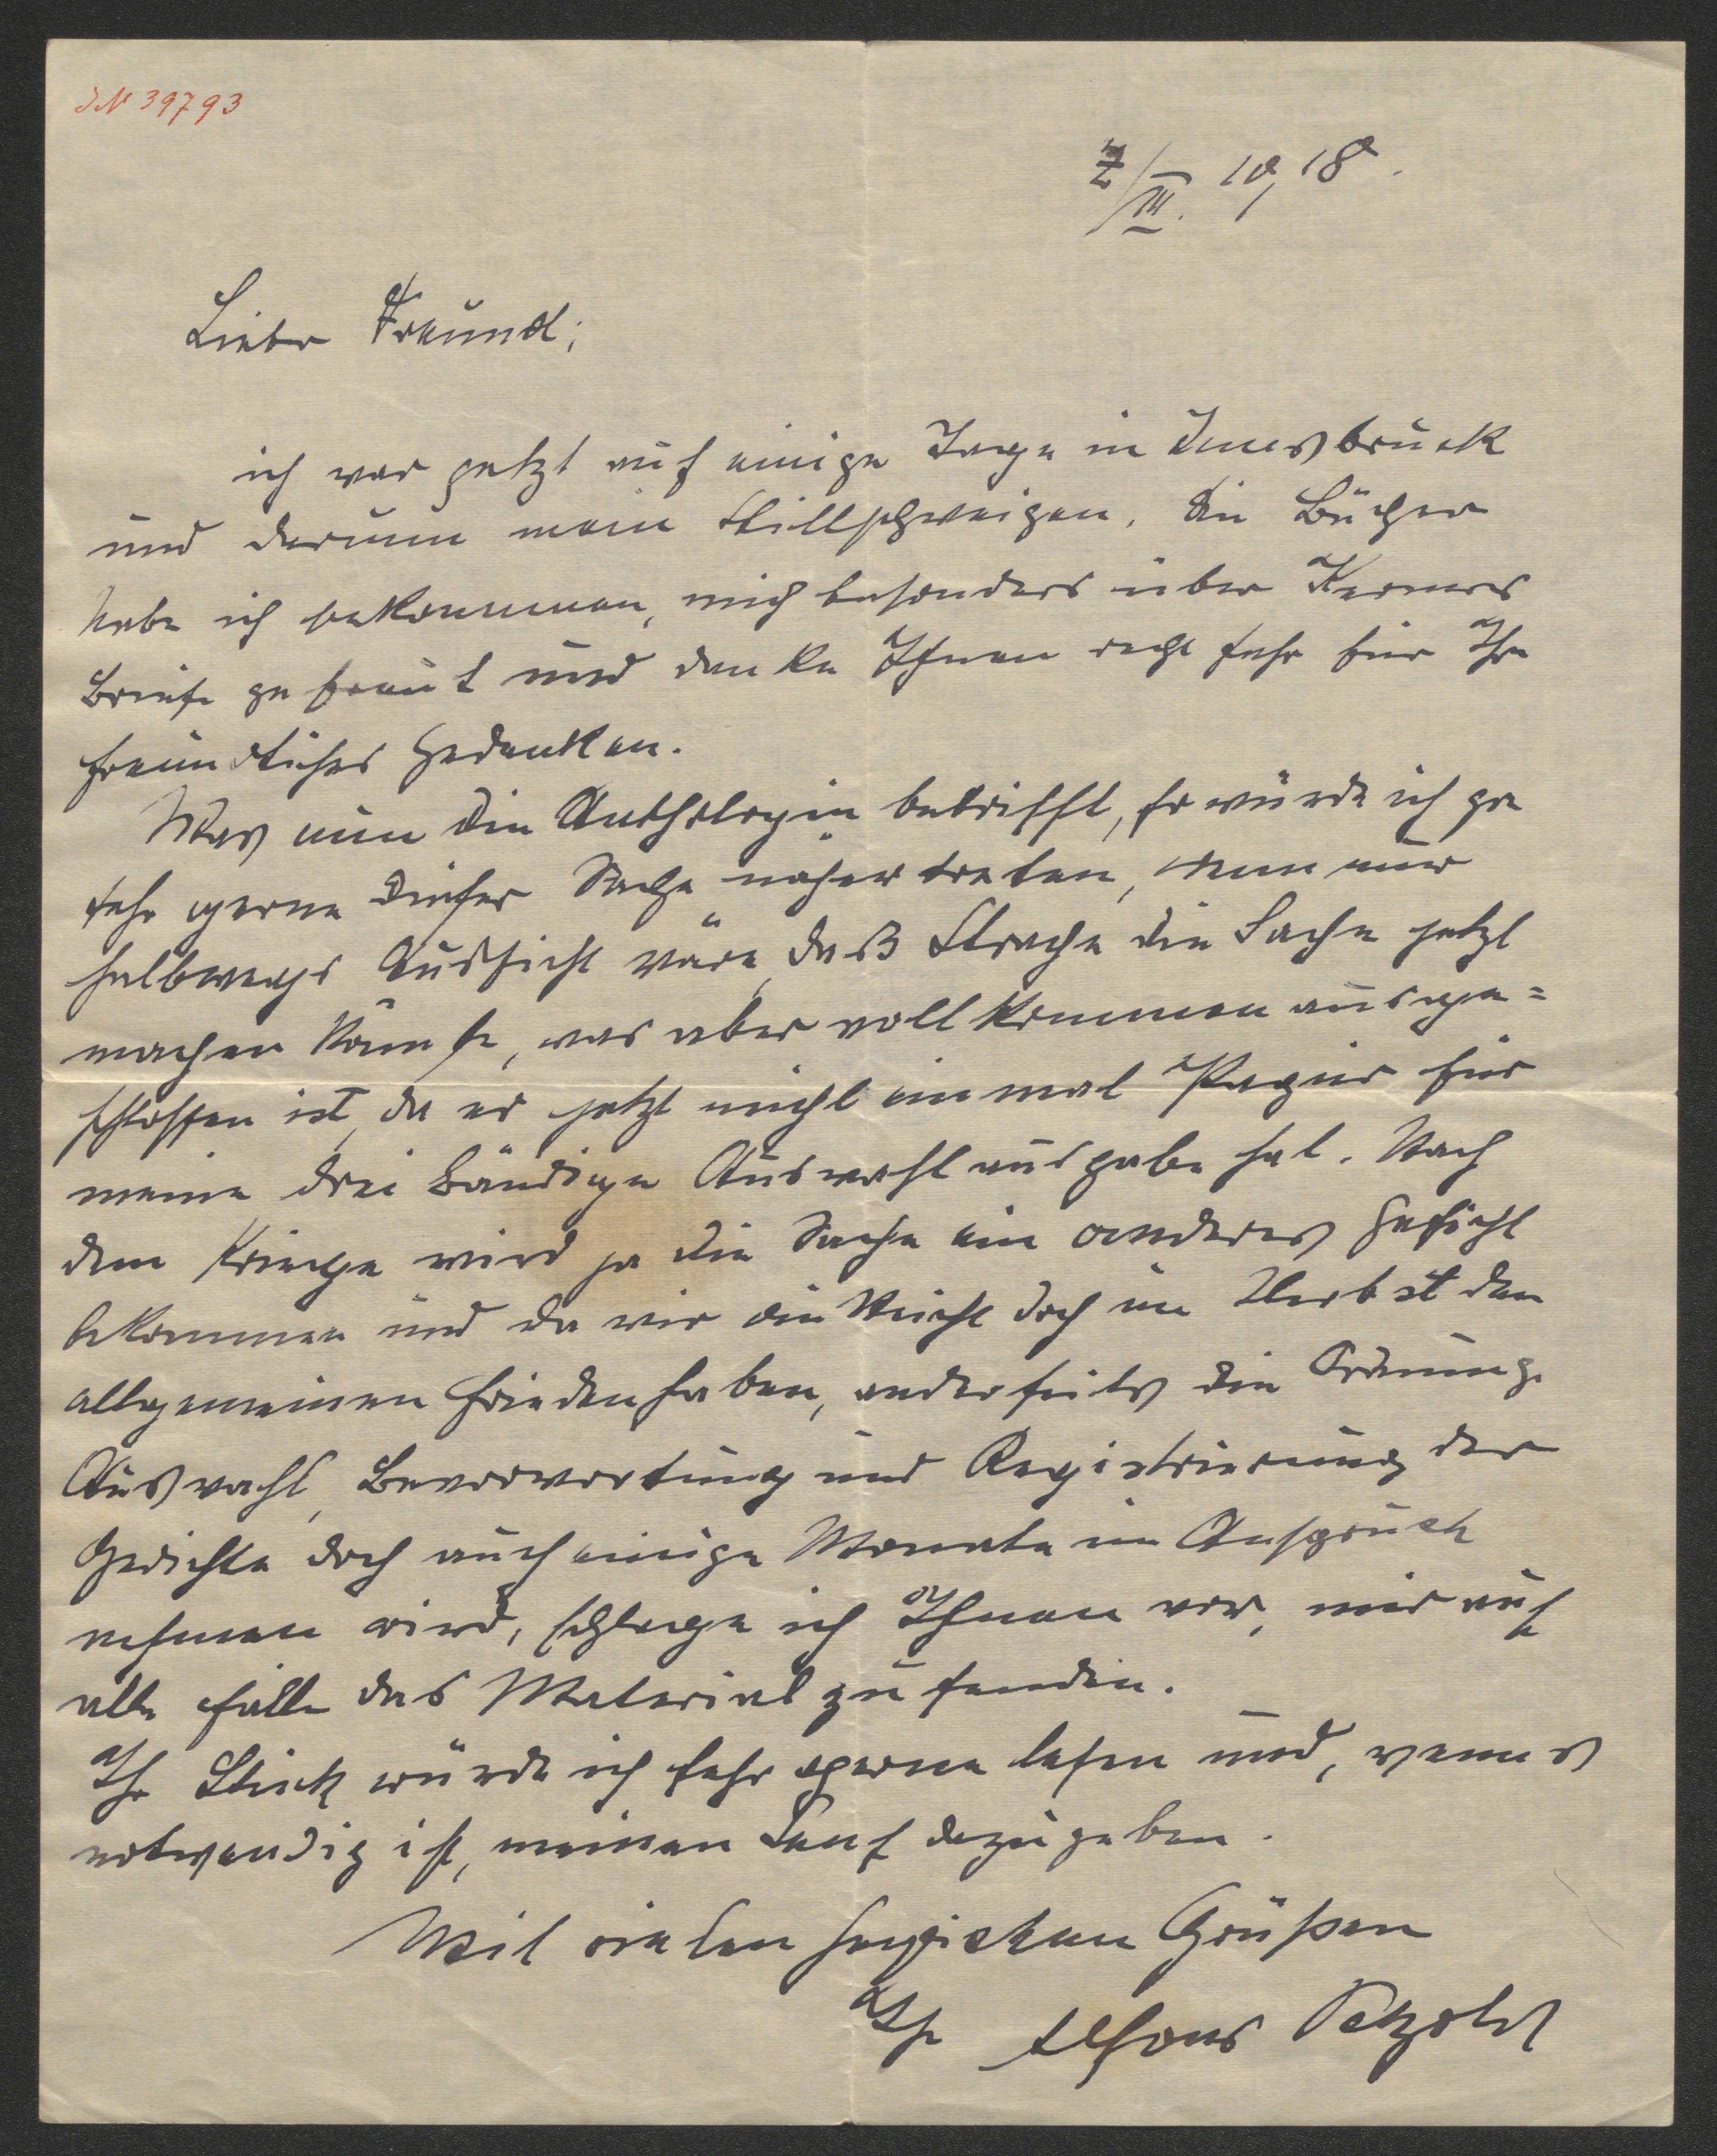 IN 39793
7/III. 1918.
Lieber Freund;
ich war jetzt auf einige Tage in Innsbruck
und darum mein Stillschweigen. Die Bücher
habe ich bekommen, mich besonders über Kerners
Briefe gefreut und danke Ihnen recht sehr für Ihr
freundliches Gedenken.
Was nun die Anthologie betrifft, so würde ich ja
sehr gerne dieser Sache näher treten, wenn nur
halbwegs Aussicht wäre, daß Strache die Sache jetzt
machen könnte, was aber vollkommen ausge=
schlossen ist, da er jetzt nicht einmal Papier für
meine drei bändige Auswahlausgabe hat. Nach
dem Kriege wird ja die Sache ein anderes Gesicht
bekommen und da wir vielleicht doch im Herbst den
allgemeinen Frieden haben, anderseits die Ordnung,
Auswahl, Bevorwortung und Registrierung der
Gedichte doch auch einige Monate in Anspruch
nehmen wird, schlage ich Ihnen vor, mir auf
alle Fälle das Material zu senden.
Ihr Stück würde ich sehr gerne lesen und, wenn es
notwendig ist, meinen Senf dazugeben.
Mit vielen herzlichen Grüßen
Ihr Alfons Petzold